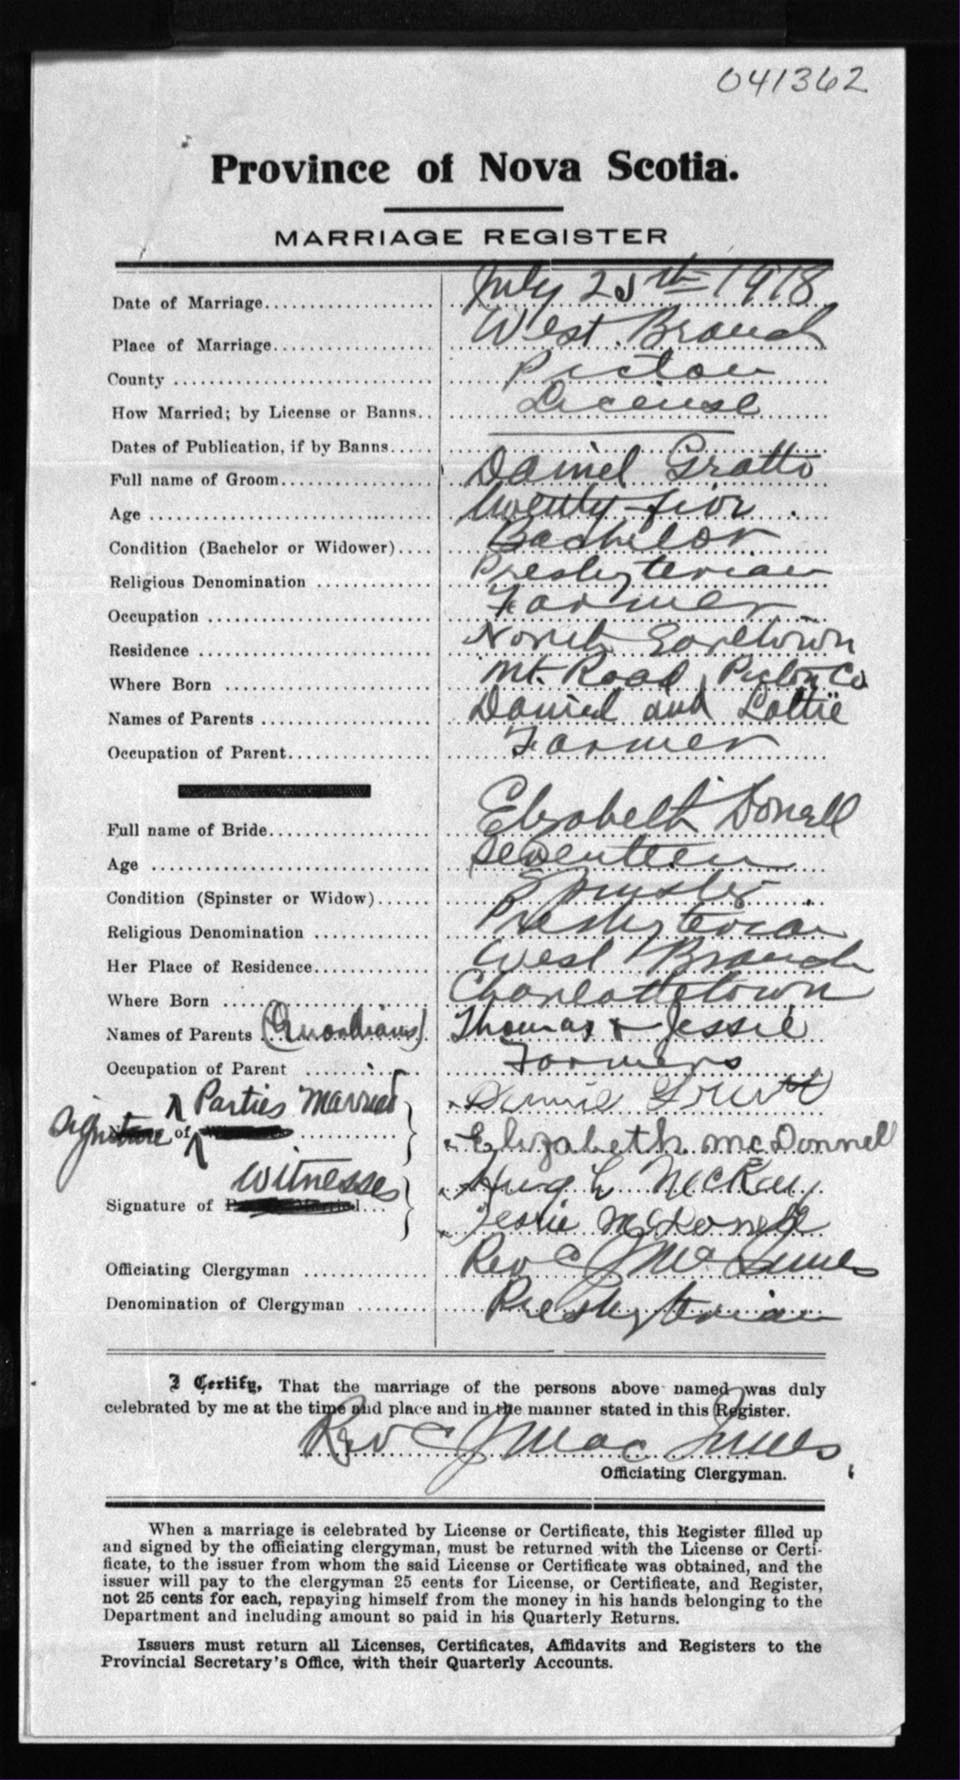 041362
Province of Nova Scotia.
MARRIAGE REGISTER
Date of Marriage July 25th 1918
Place of Marriage West Branch
County Pictou
How Married; by License or Banns License
Dates of Publication, if by Banns
Full name of Groom Daniel Gratto
Age twenty five
Condition (Bachelor or Widower) Bachelor
Religious Denomination Presbyterian
Occupation Farmer
Residence North Earltown
Where Born Mt. Road, Pictou Co
Names of Parents Daniel and Lottie
Occupation of Parent Farmer
Full name of Bride Elizabeth Donell
Age Seventeen
Condition (Spinster or Widow) Spinster
Religious Denomination Presbyterian
Her Place of Residence West Branch
Where Born Charlottetown
Names of Parents (Guardians) Thomas & Jessie
Occupation of Parent Farmers
Signature of Parties Married
Elizabeth McDonnell
Witnesses
Signature of Hug L McKay
Jessie McDonell
Officiating Clergyman Rev C J MacInnes
Denomination of Clergyman Presbyterian
I Certify, That the marriage of the persons above named was duly
celebrated by me at the time and place and in the manner stated in this Register.
Rev C J MacInnes
Officiating Clergyman.
When a marriage is celebrated by License or Certificate, this Register filled up
and signed by the officiating clergyman, must be returned with the License or Certi-
ficate, to the issuer from whom the said License or Certificate was obtained, and the
issuer will pay to the clergyman 25 cents for License, or Certificate, and Register,
not 25 cents for each, repaying himself from the money in his hands belonging to the
Department and including amount so paid in his Quarterly Returns.
Issuers must return all Licenses, Certificates, Affidavits and Registers to the
Provincial Secretary's Office, with their Quarterly Accounts.